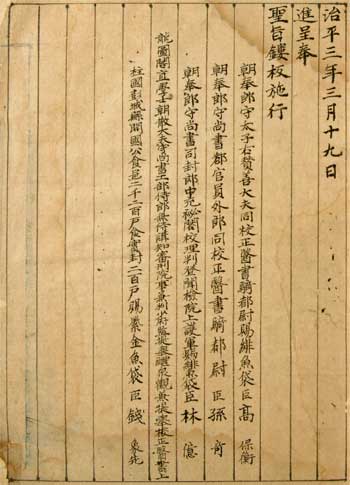 治平三年三月十九日
進呈奉
聖旨鏤板施行
朝奉郎守太子右贊善大夫同校正醫書騎都尉賜緋魚袋臣高保衡
朝奉郎守尚書都官員外郎同校正醫書騎都尉臣孫奇
朝奉郎守尚書司封郎中充祕閣校理判登聞檢院上護軍賜緋魚袋臣林億
龍圖閣直學士朝散大夫守尚書工部侍郎兼侍講知審刑院事兼判少府監提舉醴泉觀兼提舉校正醫書上
柱國彭城縣開國公食邑二千二百戶食實封二百戶賜紫金魚袋臣錢象先